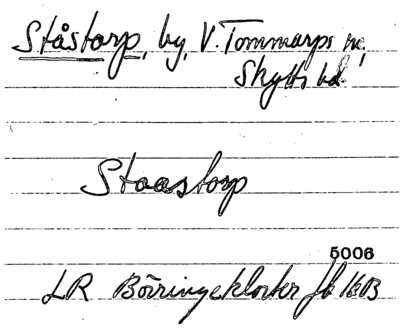 Ståstorp, by, V. Tommarps sn,
Skytts hd
Staastorp
5006
LR Börringekloster Jb 1603